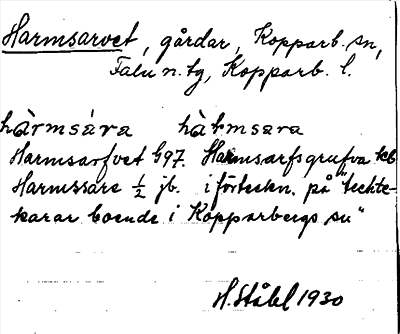 Harmsarvet, gårdar, Kopparb. sn,
Falu n. tg, Kopparb. l.
hàrmsàra hàrmsara
Harmsarfvet 697. Harmsarfsgrufva kb
Harmssare ½ jb. i förteckn. på "techte-
karar boende i Kopparbergs sn"
H. Ståhl 1930